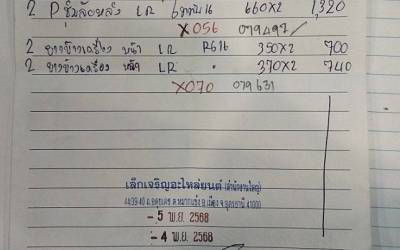 2 P. ซุ้มล้อหลัง LR 660X2 1,320
X056 079492/
2 ยางข้างเครื่อง หน้า LR R616 350X2 700
2 ยางข้างเครื่อง หลัง LR " 370X2 740
X070 079631
เล็กเจริญอะไหล่ยนต์ (สำนักงานใหญ่)
- 5 พ.ย. 2568
- 4 พ.ย. 2568